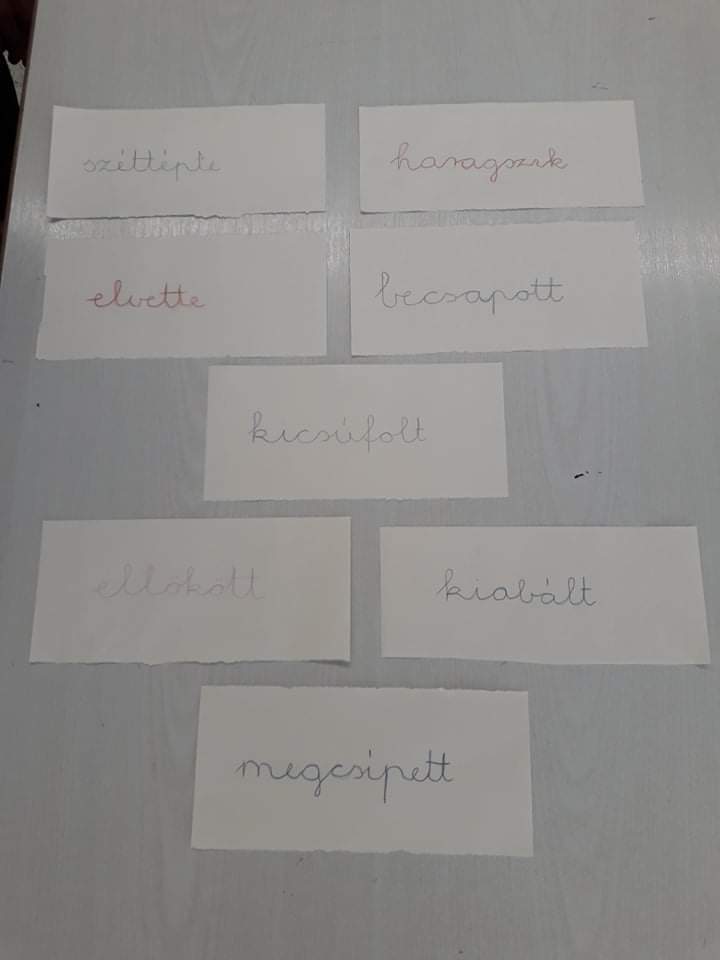 széttépte
haragszik
elvette
becsapott
kicsúfolt
ellökött
kiabált
megcsípett